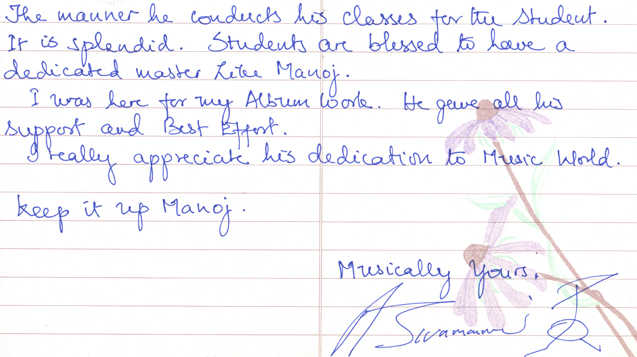 The manner he conducts his classes for the student.
It is splendid. Students are blessed to have a
dedicated master Like Manoj.
I was here for my Album work. He gave all his
support and Best Effort.
I really appreciate his dedication to Music World.
keep it up Manoj.
Musically Yours,
Sivamani